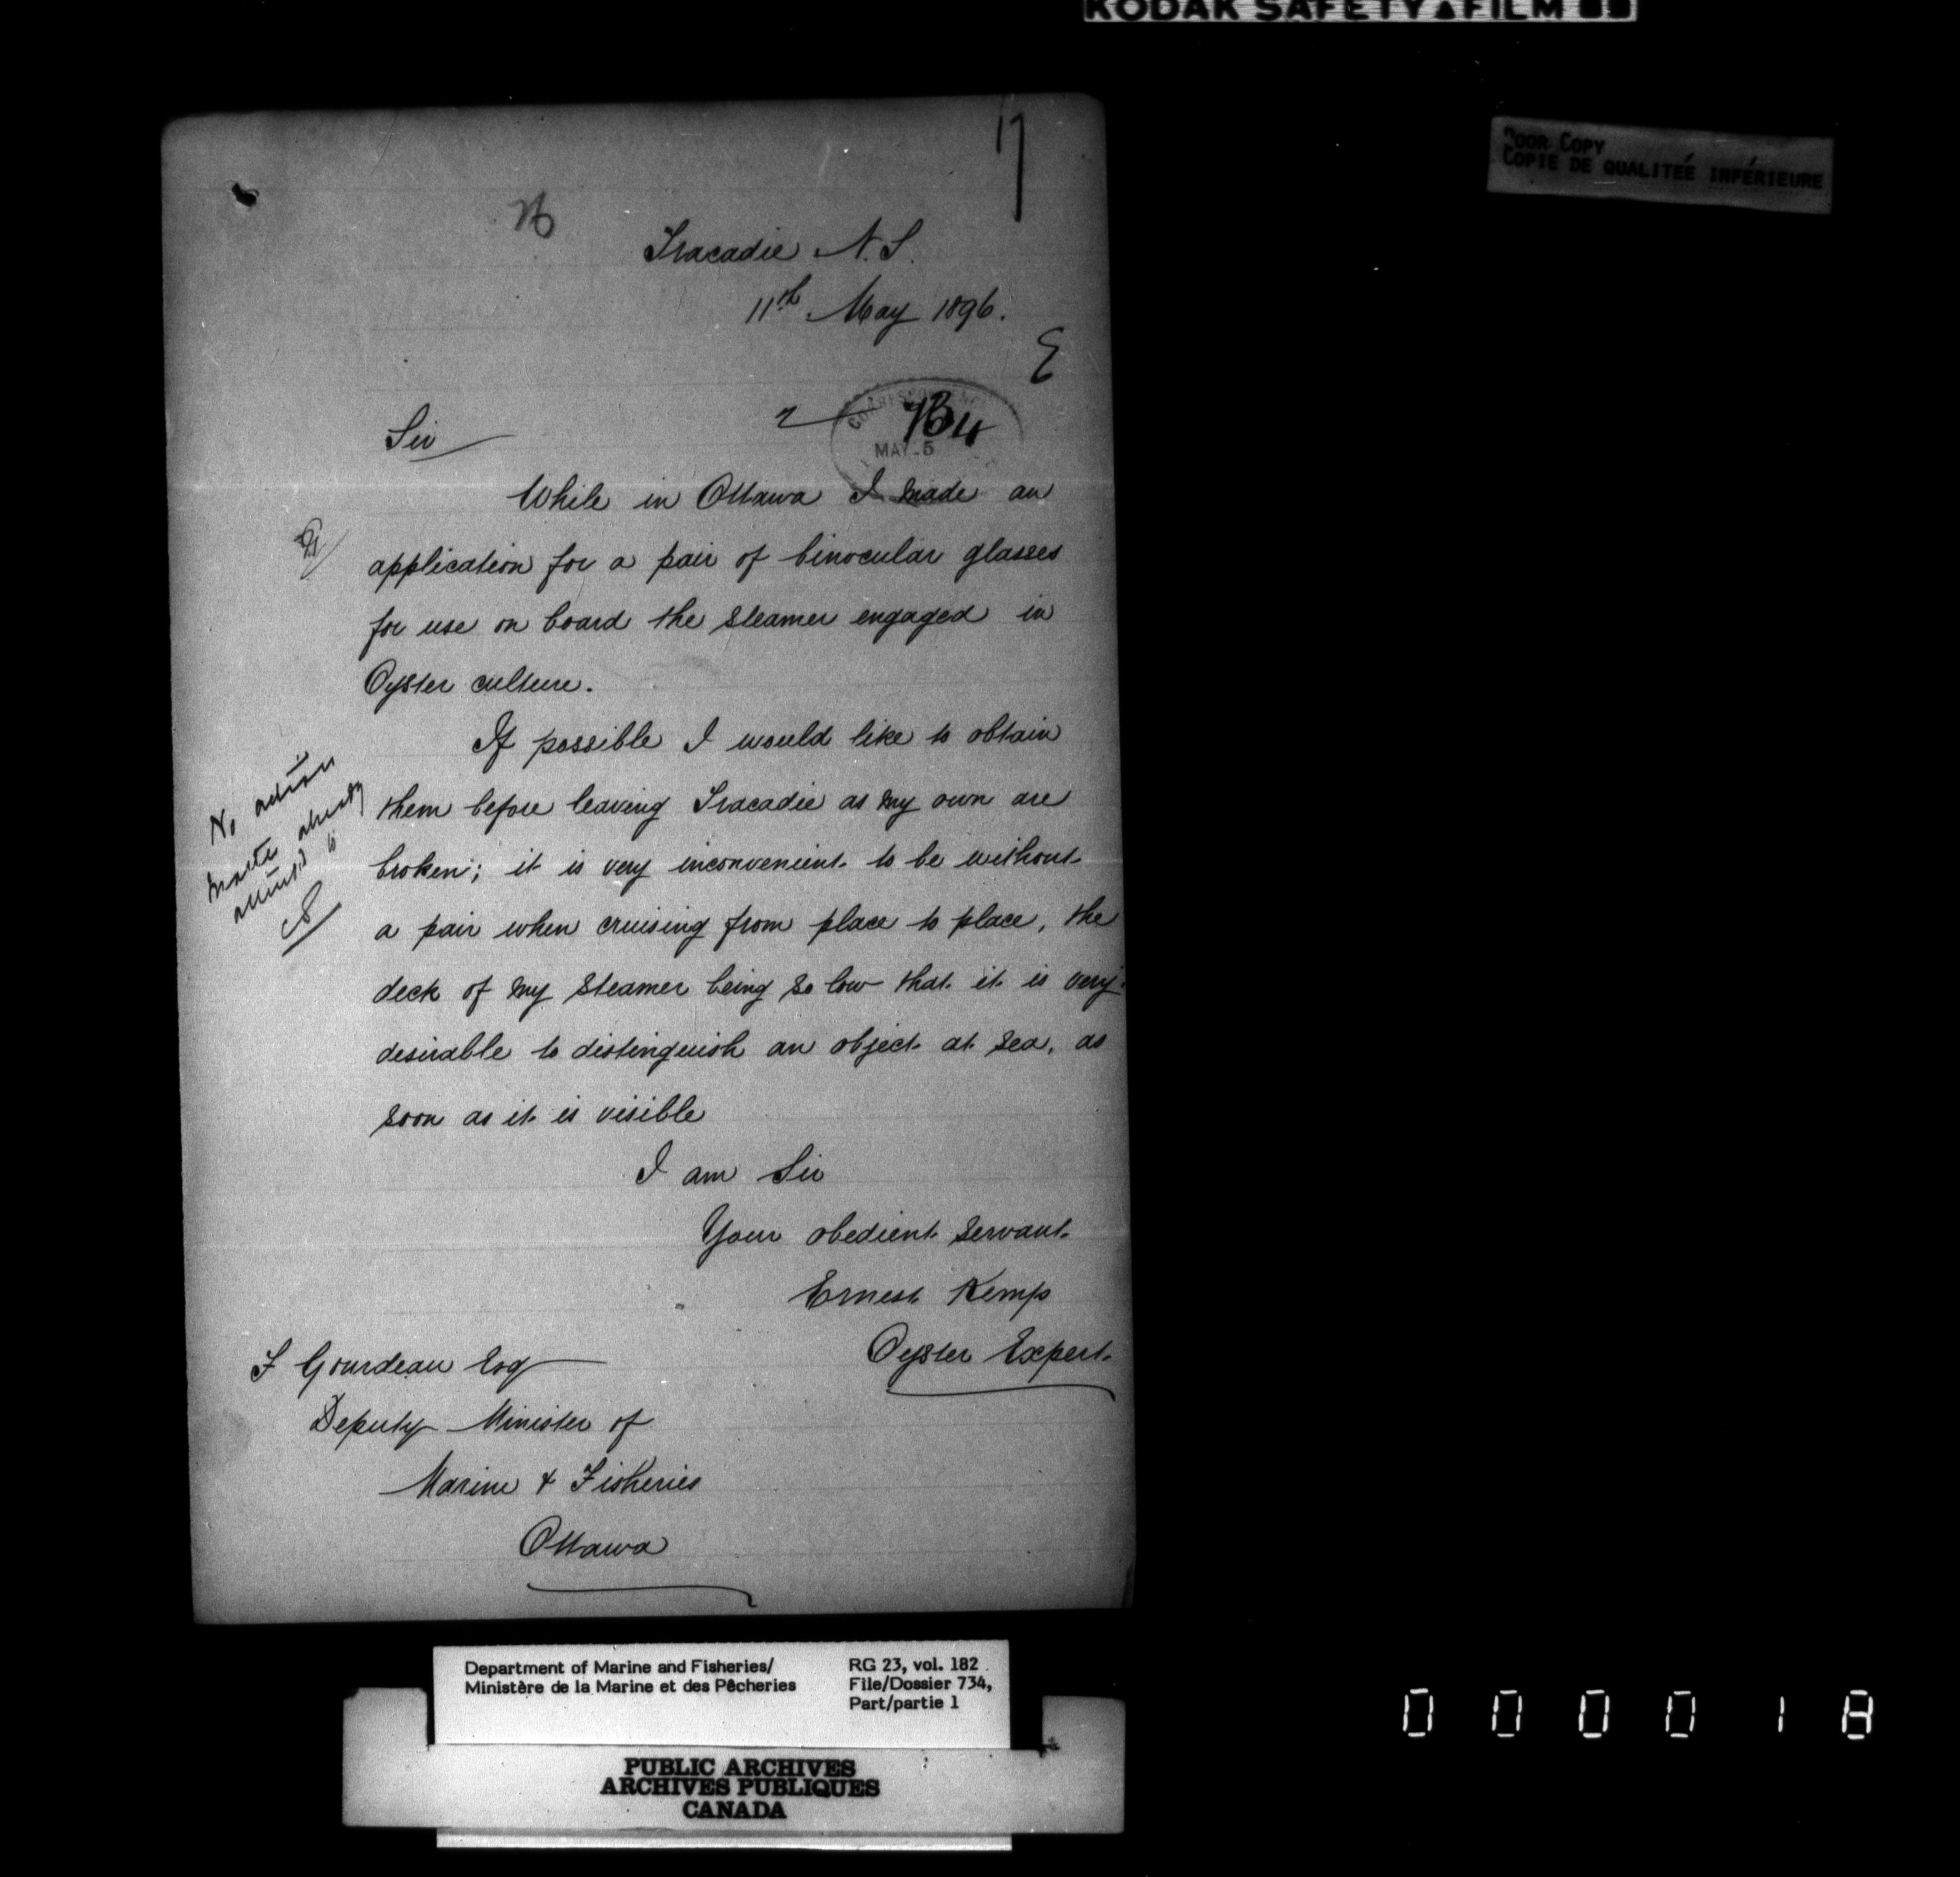 KODAK SAFETY FILM
POOR COPY
COPIE DE QUALITEÉ INFÉRIEURE
17
Tracadie N.S.
11th May 1896.
E
734
MAY 5
Sir
While in Ottawa I made an
application for a pair of binocular glasses
for use on board the steamer engaged in
Oyster culture.
If possible I would like to obtain
them before leaving Tracadie as my own are
broken; it is very inconvenient to be without
a pair when cruising from place to place, the
deck of my steamer being so low that it is very
desirable to distinguish an object at sea, as
soon as it is visible
No action
matter already
attended to
I am Sir
Your obedient servant
Ernest Kemp
Oyster Expert.
F Gourdeau Esq
Deputy Minister of
Marine & Fisheries
Ottawa
Department of Marine and Fisheries/
Ministère de la Marine et des Pêcheries
RG 23, vol. 182
File/Dossier 734,
Part/partie 1
PUBLIC ARCHIVES
ARCHIVES PUBLIQUES
CANADA
000018